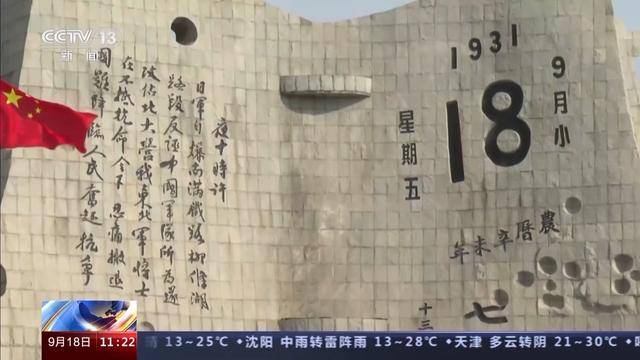 CCTV 13
新闻
夜十時許
日軍自爆南滿鐵路柳條湖
路段反誣中國軍隊所為遂
攻佔北大營我東北軍將士
在不抵抗命令下忍痛撤退
國難降臨人民奮起抗爭
1931
9月小
18
星期五
農曆辛未年
七
十三
9月18日 11:22
13~25℃ •沈阳 中雨转雷阵雨 13~28℃ •天津 多云转阴 21~30℃ •